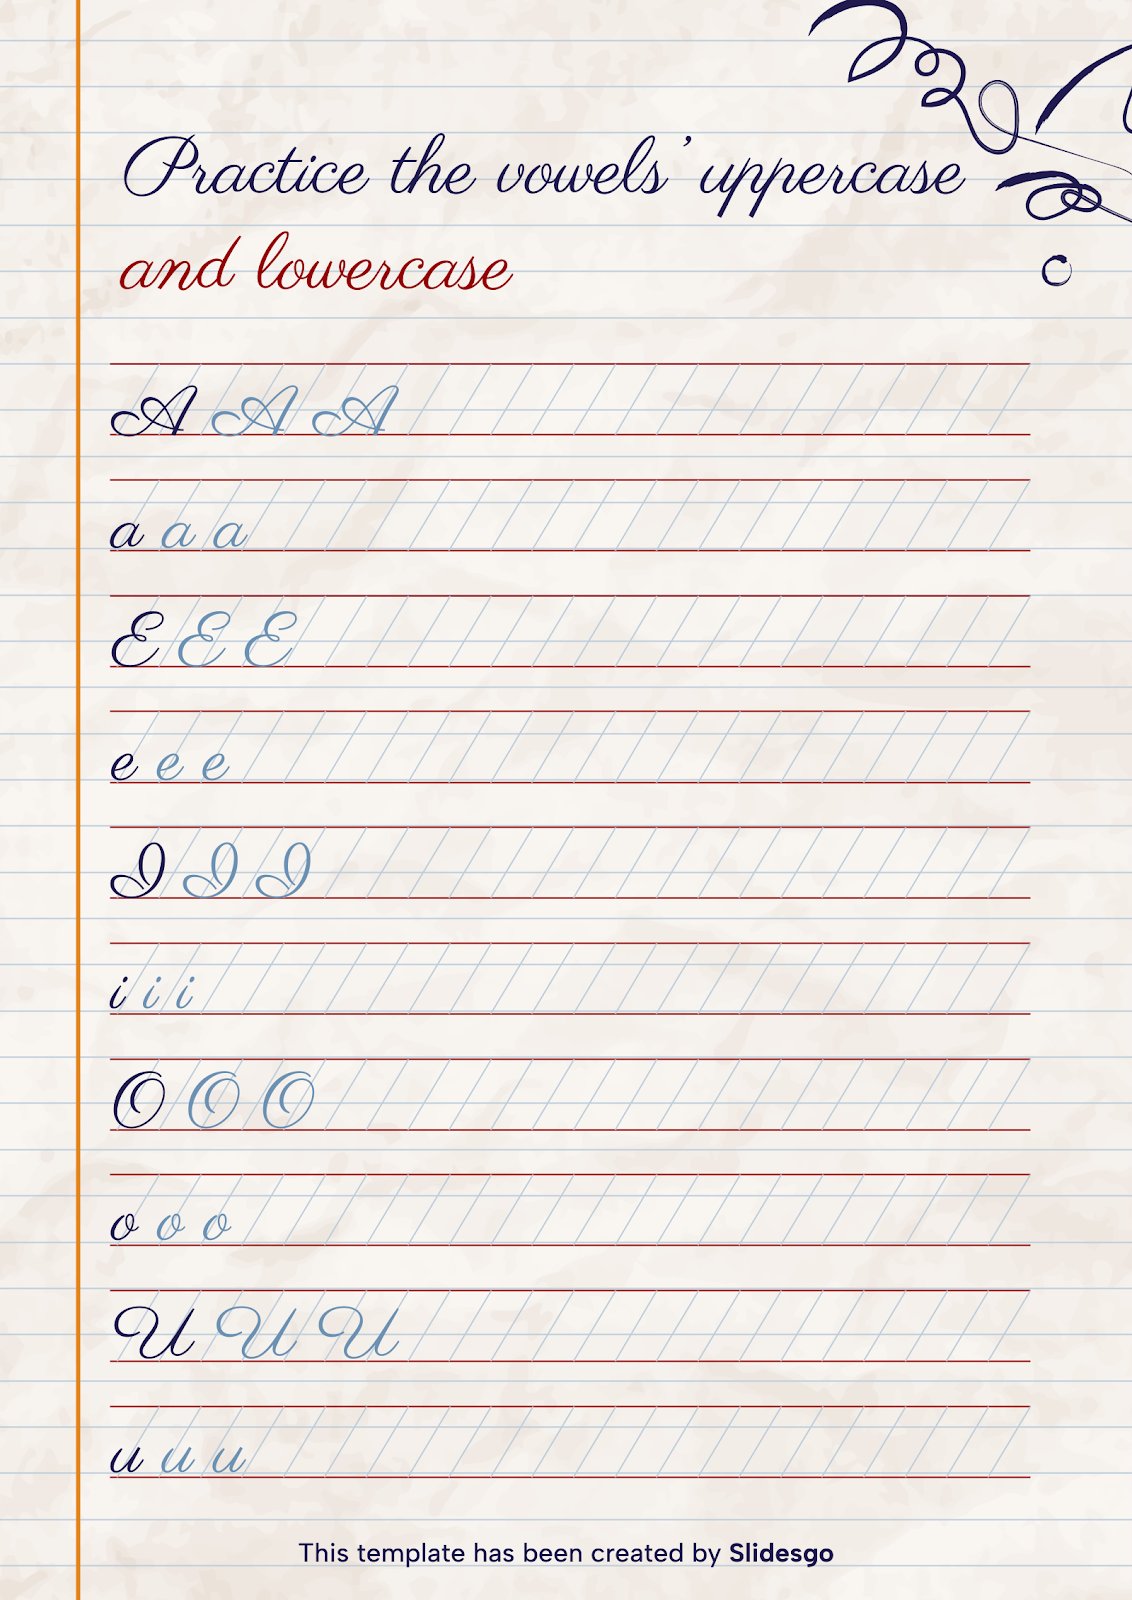 Practice the vowels’ uppercase
and lowercase
A A A
a a a
E E E
e e e
I I I
i i i
O O O
o o o
U U U
u u u
This template has been created by Slidesgo